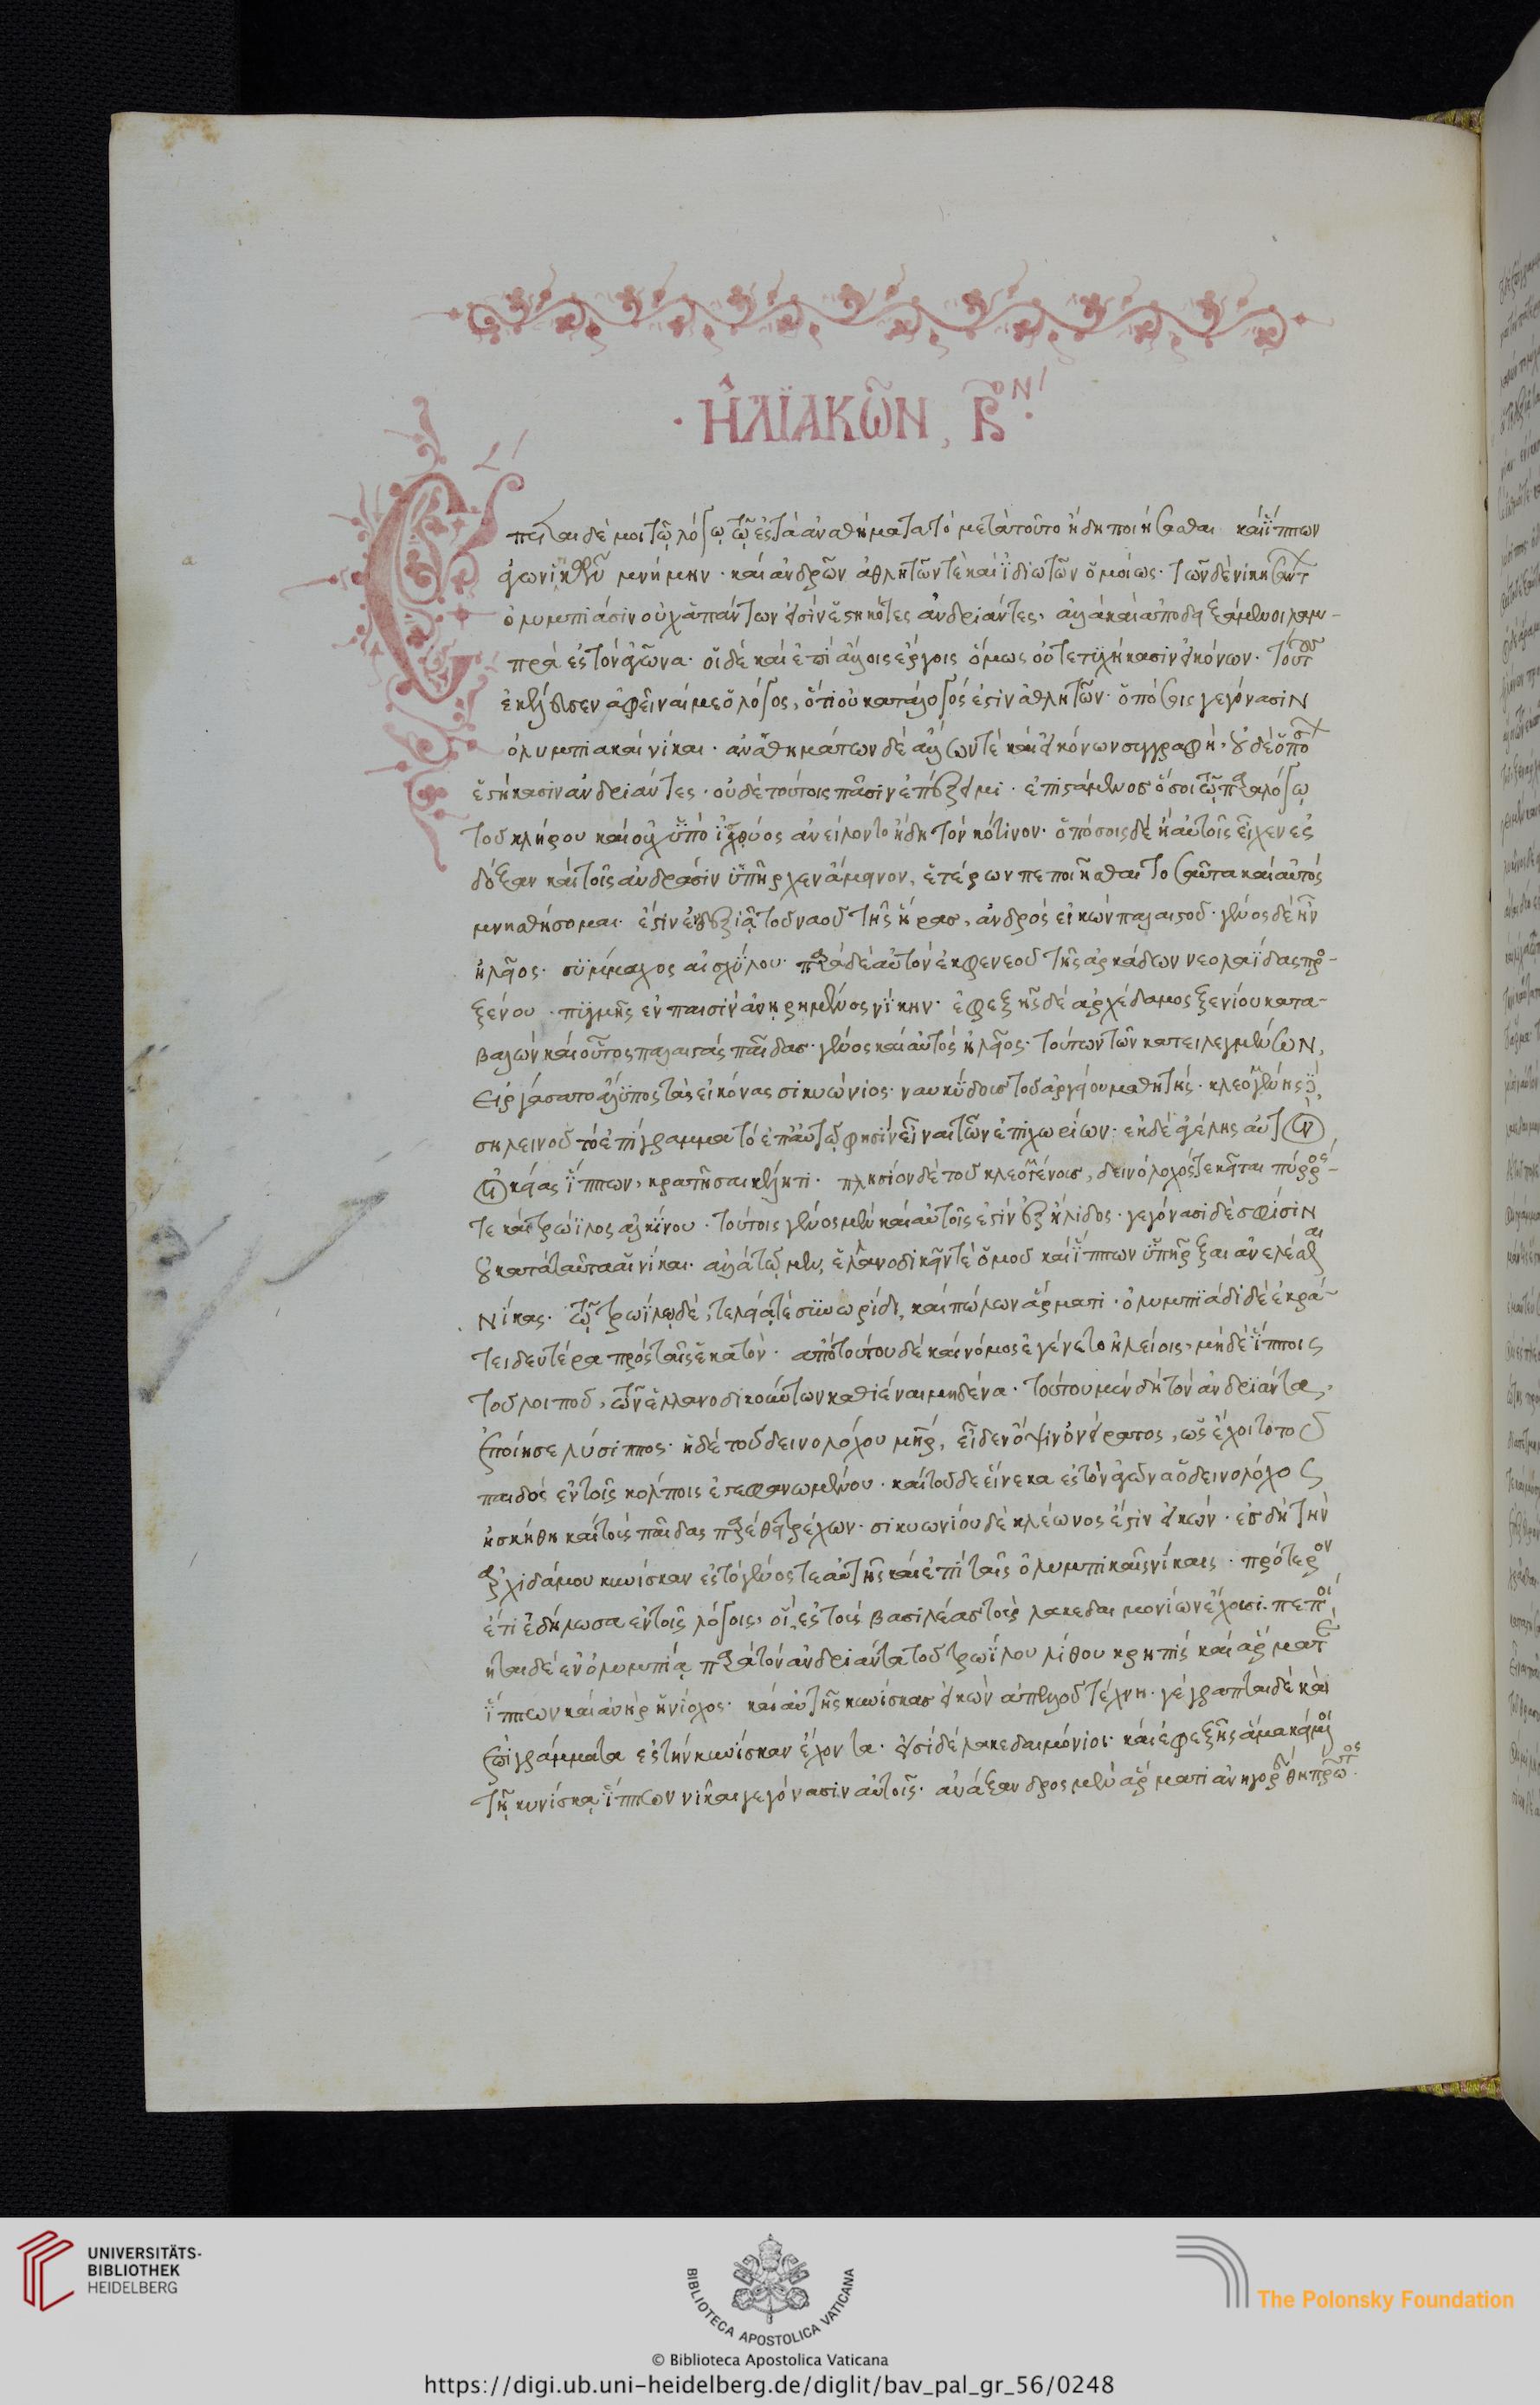 · ἨΛΙΑΚῶΝ, Βον ·
Ἕπεται δέ μοι τῷ λόγῳ τῷ ἐς τὰ ἀναθήματα τὸ μετὰ τοῦτο ἤδη ποιήσασθαι καὶ ἵππων
μνήμην · καὶ ἀνδρῶν ἀθλητῶν τὲ καὶ ἰδιωτῶν ὁμοίως · τῶν δὲ νικησάντ
ὀλυμπιάσιν οὐχ ἁπάντων εἰσὶν ἑστηκότες ἀνδριάντες, ἀλλὰ καὶ ἀποδειξάμενοι λαμ-
πρὰ ἐς τὸν ἀγῶνα · οἱ δὲ καὶ ἐπὶ ἄλλοις ἔργοις ὅμως οὐ τετυχήκασιν εἰκόνων · τούτους
ἐκέλευσεν ἀφεῖναί με ὁ λόγος, ὅτι οὐ κατάλογός ἐστιν ἀθλητῶν ὁπόσοις γεγόνασιν
ὀλυμπιακαὶ νίκαι · ἀναθημάτων δὲ ἄλλων τὲ καὶ εἰκόνων συγγραφή · οὐδὲ ὁπόσων
ἑστήκασιν ἀνδριάντες · οὐδὲ τούτοις πᾶσιν ἐπέξειμι · ἐπιστάμενος ὅσοι τῷ παραλόγῳ
τοῦ κλήρου καὶ οὐχ ὑπὸ ἰσχύος ἀνείλοντο ἤδη τὸν κότινον · ὁπόσοις δὲ ἢ αὐτοῖς εἶχεν ἐς
δόξαν καὶ τοῖς ἀνδράσιν ὑπῆρχεν ἄμεινον, ἑτέρων πεποιῆσθαι τοσαῦτα καὶ αὐτὸς
μνησθήσομαι · ἔστιν ἐν δεξιᾷ τοῦ ναοῦ τῆς ἥρας, ἀνδρὸς εἰκὼν παλαιστοῦ · γένος δὲ ἦν
ἠλεῖος · σύμμαχος αἰσχύλου · παρὰ δὲ αὐτὸν ἐκ φενεοῦ τῆς ἀρκάδων νεολαΐδας προ-
ξένου · πυγμῆς ἐν παισὶν ἀνῃρημένος νίκην · ἐφεξῆς δὲ ἀρχέδαμος ξενίου κατα-
βαλὼν καὶ οὗτος παλαιστὰς παῖδας · γένος καὶ αὐτὸς ἠλεῖος · τούτων τῶν κατειλεγμένων,
εἰργάσατο ἄλυπος τὰς εἰκόνας σικυώνιος · ναυκύδους τοῦ ἀργείου μαθητής · κλεογένης δὲ
σηλεινοῦ τὸ ἐπίγραμμα τὸ ἐπ' αὐτῷ φησὶν εἶναι τῶν ἐπιχωρίων · ἐκ δὲ ἀγέλης αὐτὸν
οἰκείας ἵππων, κρατῆσαι κέλητι · πλησίον δὲ τοῦ κλεογένους, δεινόλοχός τε κεῖται πύρρος
τε καὶ τρωίλος ἀλκίνου · τούτοις γένος μὲν καὶ αὐτοῖς ἐστὶν ἐξ ἤλιδος · γεγόνασι δὲ σφίσιν
οὐ κατὰ ταῦτα αἱ νίκαι · ἀλλὰ τῷ μὲν, ἑλλανοδικεῖν τὲ ὁμοῦ καὶ ἵππων ὑπῆρξαι ἀνελέσθαι
νίκας · τῷ τρωίλῳ δὲ, τελείᾳ τὲ συνωρίδι, καὶ πώλων ἅρματι · ὀλυμπιάδι δὲ ἐκρά-
τει δευτέρα πρὸς ταῖς ἑκατόν · ἀπὸ τούτου δὲ καὶ νόμος ἐγένετο ἠλείοις, μηδὲ ἵπποις
τοῦ λοιποῦ, τῶν ἑλλανοδικούντων καθιέναι μηδένα · τούτου μὲν δὴ τὸν ἀνδριάντα,
ἐποίησε λύσιππος · ἡ δὲ τοῦ δεινολόχου μῆρ, εἶδεν ὄψιν ὀνείρατος, ὡς ἔχοιτο τοῦ
παιδὸς ἐν τοῖς κόλποις ἐστεφανωμένου · καὶ τοῦδε εἵνεκα ἐς τὸν ἀγῶνα ὁ δεινολόχος
ἠσκήθη καὶ τοὺς παῖδας παρέθει τρέχων · σικυωνίου δὲ κλέωνος ἐστὶν εἰκών · ἐς δὴ τὴν
ἀρχιδάμου κυνίσκαν ἐς τὸ γένος τε αὐτῆς καὶ ἐπὶ ταῖς ὀλυμπικαῖς νίκαις · πρότερον
ἔτι ἐδήλωσα ἐν τοῖς λόγοις, οἳ ἐς τοὺς βασιλέας τοὺς λακεδαιμονίων ἔχουσι · πεποί
ηται δὲ ἐν ὀλυμπίᾳ παρὰ τὸν ἀνδριάντα τοῦ τρωίλου λίθου κρηπὶς καὶ ἅρμα τε
ἵππων καὶ ἀνὴρ ἡνίοχος · καὶ αὐτῆς κυνίσκας εἰκὼν ἀπελλοῦ τέχνη · γέγραπται δὲ καὶ
ἐπιγράμματα ἐς τὴν κυνίσκαν ἔχοντα · εἰσὶ δὲ λακεδαιμόνιοι · καὶ ἐφεξῆς ἀνακείμενοι
τῇ κυνίσκᾳ ἵππων νῖκαι γεγόνασιν αὐτοῖς · ἀνάξανδρος μὲν ἅρματι ἀνηγορεύθη πρῶτος ·
UNIVERSITÄTS-
BIBLIOTHEK
HEIDELBERG
BIBLIOTECA APOSTOLICA VATICANA
© Biblioteca Apostolica Vaticana
The Polonsky Foundation
https://digi.ub.uni-heidelberg.de/diglit/bav_pal_gr_56/0248